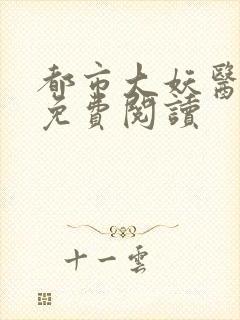 都市大妖醫
免費閱讀
十一雲